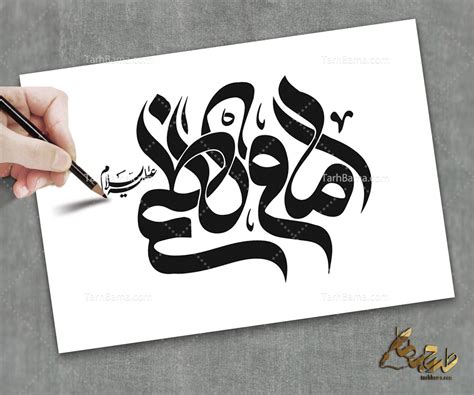 امام کاظم
علیه السلام
TarhBama.com
TarhBama.com
TarhBama.com
TarhBama.com
TarhBama.com
TarhBama.com
طرح باما
tarhbama.com